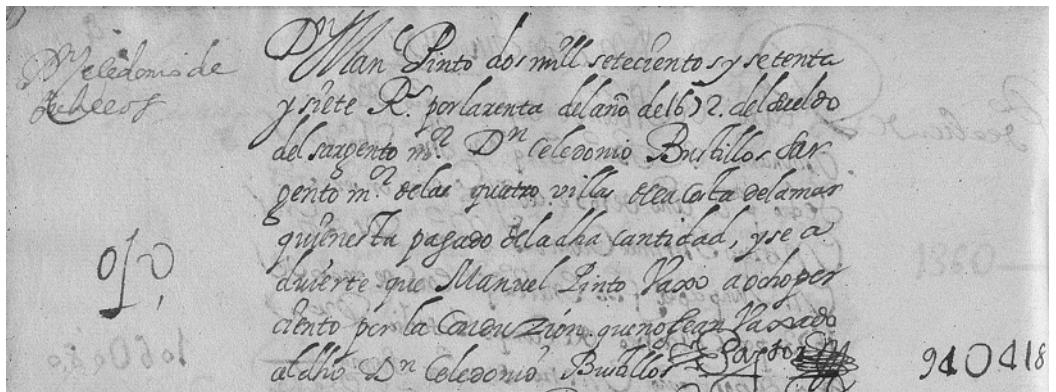 Dn Celedonio de
Dn Man Pinto dos mill setecientos y setenta
y siete Rs. por la renta del año de 1672. del sueldo
del sargento mor Dn Celedonio Bustillos sar
gento mor de las quatro villas de la costa de la mar
quien esta pagado de la dha cantidad, y se a
duierte que Manuel Pinto Vaxo a ocho per
ciento por la Conduzión que no sean Vaxado
al dho Dn Celedonio Bustillos